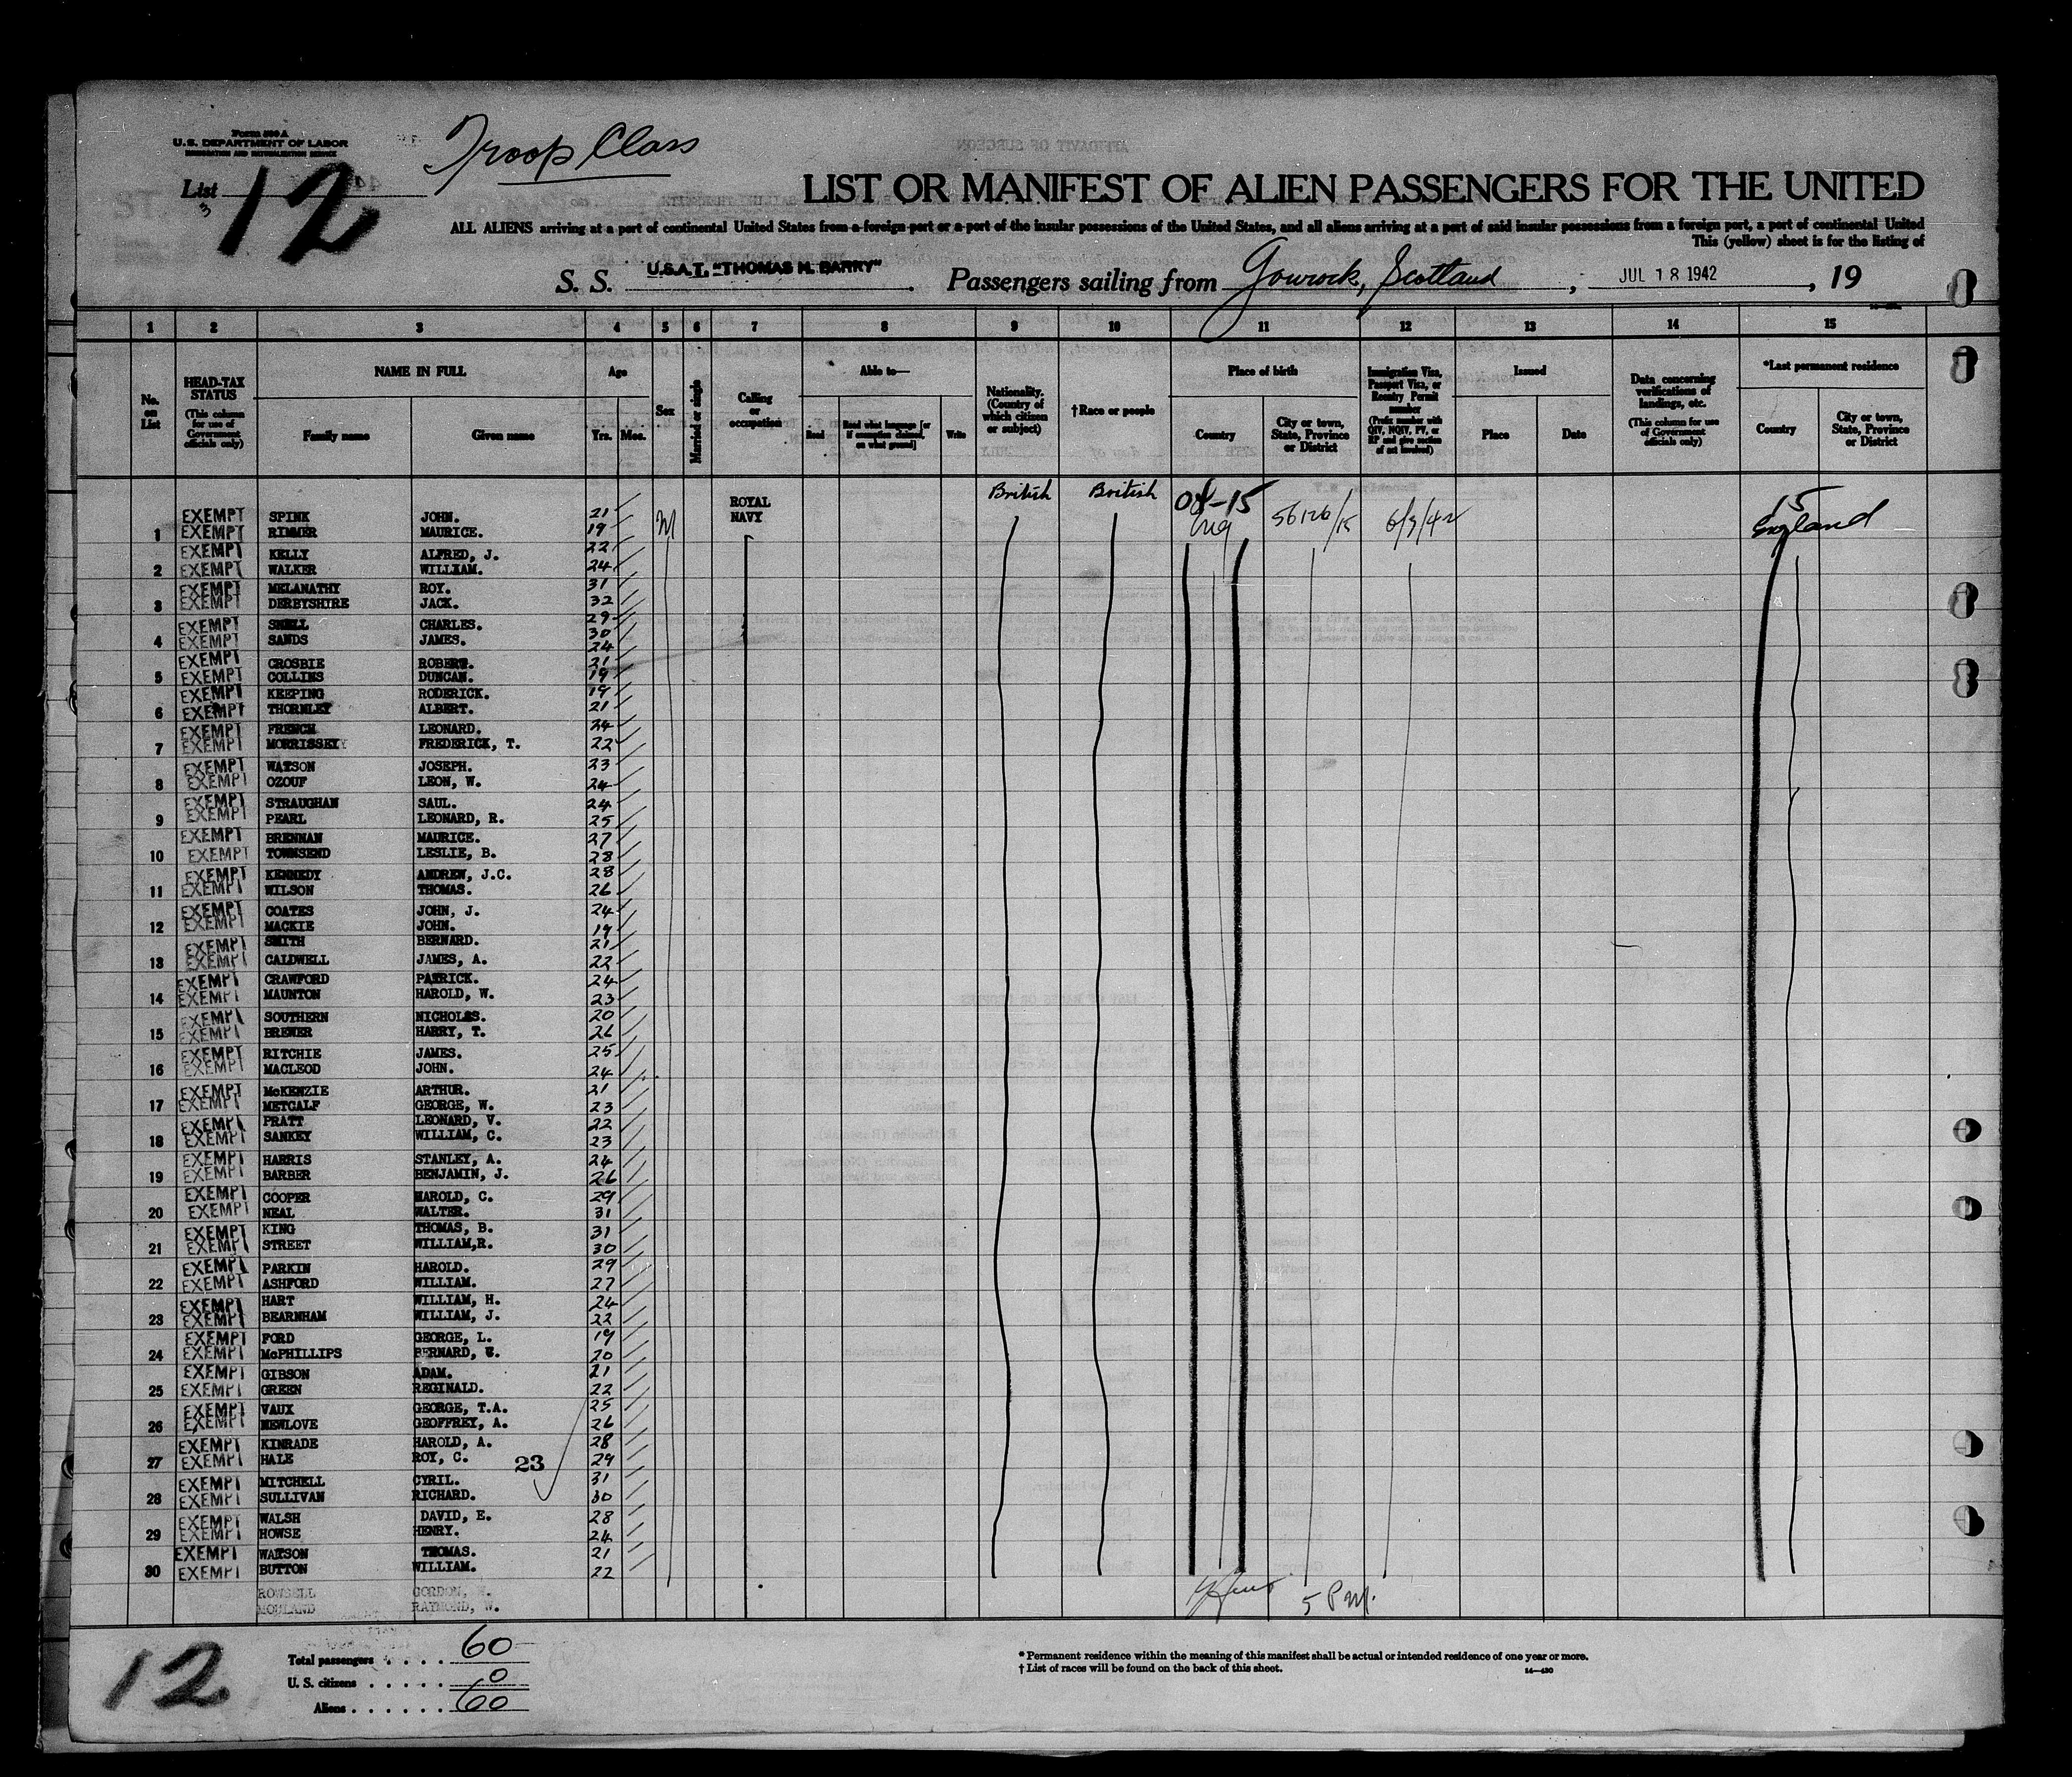 Form 500 A
U.S. DEPARTMENT OF LABOR
IMMIGRATION AND NATURALIZATION SERVICE
Troop Class
List 12
3
LIST OR MANIFEST OF ALIEN PASSENGERS FOR THE UNITED
ALL ALIENS arriving at a port of continental United States from a foreign port or a port of the insular possessions of the United States, and all aliens arriving at a port of said insular possessions from a foreign port, a port of continental United
This (yellow) sheet is for the listing of
S. S. U.S.A.T. "THOMAS H. BARRY" . Passengers sailing from Gourock, Scotland , JUL 18 1942 , 19
1 2 3 4 5 6 7 8 9 10 11 12 13 14 15
No. on List
HEAD-TAX STATUS (This column for use of Government officials only)
NAME IN FULL
Family name Given name
Age
Yrs. Mos.
Sex
Married or single
Calling or occupation
Able to—
Read Read what language [or if exemption claimed, on what ground] Write
Nationality. (Country of which citizen or subject)
†Race or people
Place of birth
Country City or town, State, Province or District
Immigration Visa, Passport Visa, or Reentry Permit number (Prefix number with QIV, NQIV, PV, or RP and give section of act involved)
Issued
Place Date
Data concerning verifications of landings, etc. (This column for use of Government officials only)
*Last permanent residence
Country City or town, State, Province or District
ROYAL NAVY British British 08-15 15
EXEMPT SPINK JOHN. 21 M Eng 56126/15 6/3/42 England
1 EXEMPT RIMMER MAURICE. 19
EXEMPT KELLY ALFRED, J. 22
2 EXEMPT WALKER WILLIAM. 24
EXEMPT MELANATHY ROY. 31
3 EXEMPT DERBYSHIRE JACK. 32
EXEMPT SNELL CHARLES. 29
4 EXEMPT SANDS JAMES. 30
24
EXEMPT CROSBIE ROBERT. 21
5 EXEMPT COLLINS DUNCAN. 19
EXEMPT KEEPING RODERICK. 19
6 EXEMPT THORNLEY ALBERT. 21
EXEMPT FRENCH LEONARD. 24
7 EXEMPT MORRISSEY FREDERICK, T. 22
EXEMPT WATSON JOSEPH. 23
8 EXEMPT OZOUF LEON, W. 24
EXEMPT STRAUGHAN SAUL. 24
9 EXEMPT PEARL LEONARD, R. 25
EXEMPT BRENNAN MAURICE. 27
10 EXEMPT TOWNSEND LESLIE, B. 28
EXEMPT KENNEDY ANDREW, J.C. 28
11 EXEMPT WILSON THOMAS. 26
EXEMPT COATES JOHN, J. 24
12 EXEMPT MACKIE JOHN. 19
EXEMPT SMITH BERNARD. 21
13 EXEMPT CALDWELL JAMES, A. 22
EXEMPT CRAWFORD PATRICK. 24
14 EXEMPT MAUNTON HAROLD, W. 23
EXEMPT SOUTHERN NICHOLAS. 20
15 EXEMPT BREWER HARRY, T. 26
EXEMPT RITCHIE JAMES. 25
16 EXEMPT MACLEOD JOHN. 24
EXEMPT McKENZIE ARTHUR. 21
17 EXEMPT METCALF GEORGE, W. 23
EXEMPT PRATT LEONARD, V. 22
18 EXEMPT SANKEY WILLIAM, C. 23
EXEMPT HARRIS STANLEY, A. 24
19 EXEMPT BARBER BENJAMIN, J. 26
EXEMPT COOPER HAROLD, C. 29
20 EXEMPT NEAL WALTER. 31
EXEMPT KING THOMAS, B. 31
21 EXEMPT STREET WILLIAM,R. 30
EXEMPT PARKIN HAROLD. 29
22 EXEMPT ASHFORD WILLIAM. 27
EXEMPT HART WILLIAM, H. 24
23 EXEMPT BEARNHAM WILLIAM, J. 22
EXEMPT FORD GEORGE, L. 19
24 EXEMPT McPHILLIPS BERNARD, W. 20
EXEMPT GIBSON ADAM. 21
25 EXEMPT GREEN REGINALD. 22
EXEMPT VAUX GEORGE, T.A. 25
26 EXEMPT NEWLOVE GEOFFREY, A. 26
EXEMPT KINRADE HAROLD, A. 28
27 EXEMPT HALE ROY, C. 23 29
EXEMPT MITCHELL CYRIL. 31
28 EXEMPT SULLIVAN RICHARD. 30
EXEMPT WALSH DAVID, E. 28
29 EXEMPT HOWSE HENRY. 24
EXEMPT WATSON THOMAS. 21
30 EXEMPT BUTTON WILLIAM. 22
ROWSELL GORDON, H.
MOULAND RAYMOND, W. 5 PM.
12
Total passengers . . . . 60
U. S. citizens . . . . . 0
Aliens . . . . . . 60
* Permanent residence within the meaning of this manifest shall be actual or intended residence of one year or more.
† List of races will be found on the back of this sheet. 14—430